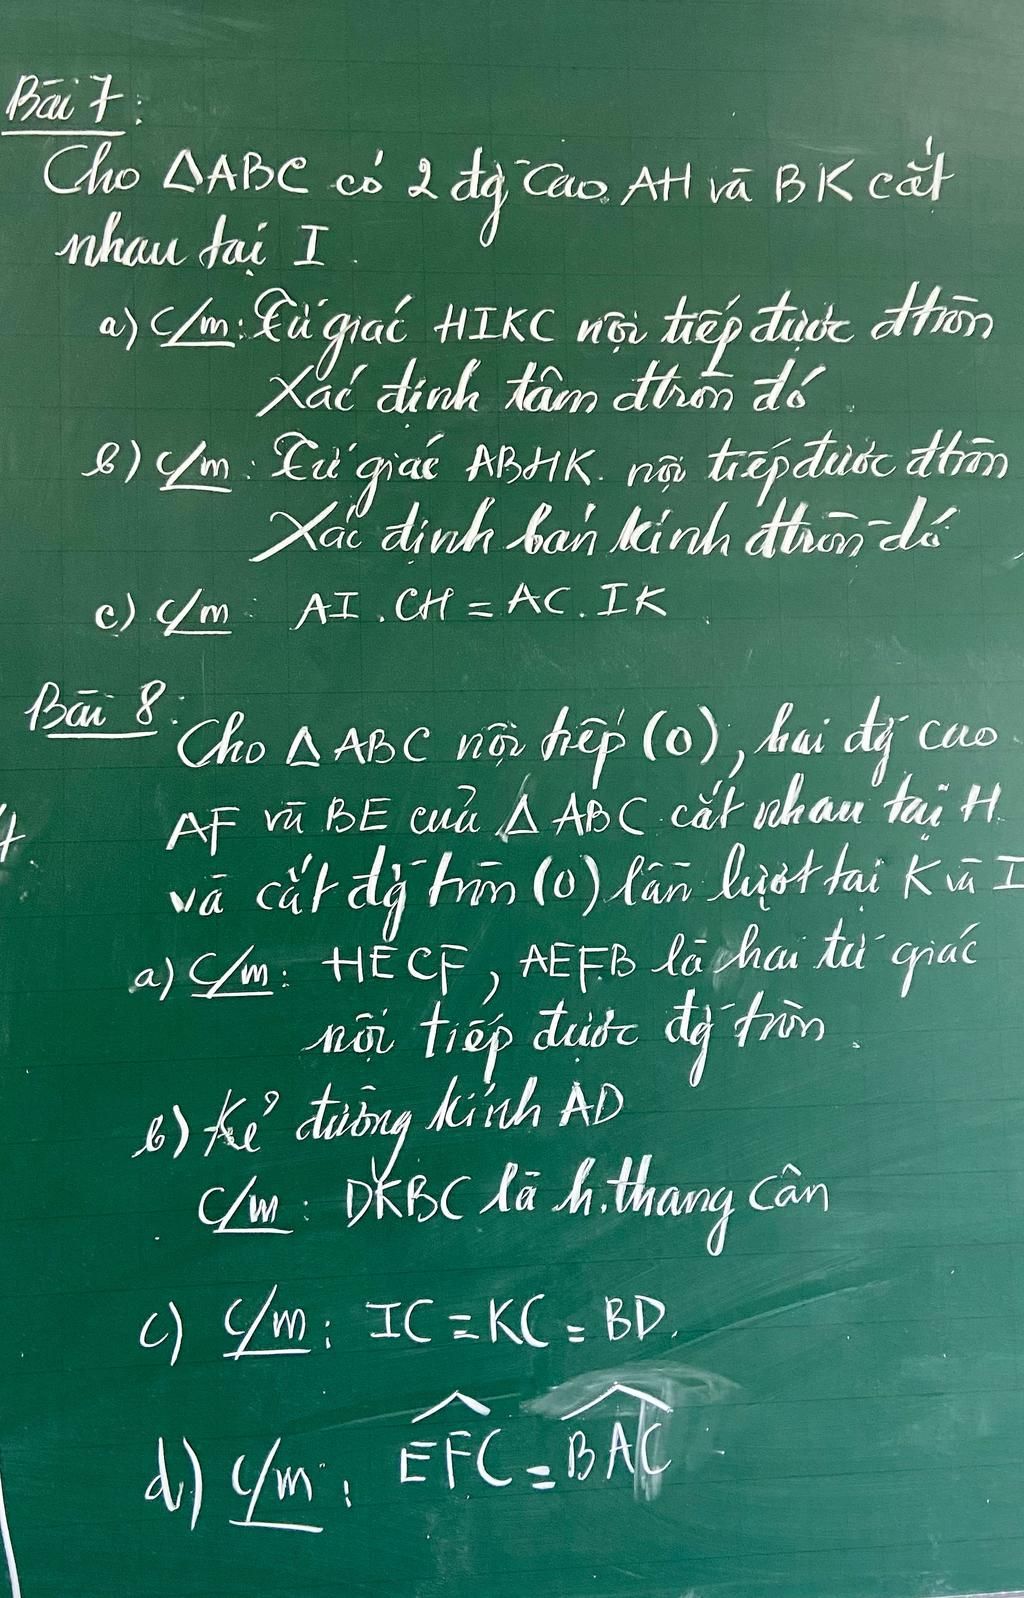 Bài 7:
Cho △ABC có 2 đg cao AH và BK cắt
nhau tại I.
a) C/m: Tứ giác HIKC nội tiếp được đtròn
Xác định tâm đtròn đó.
b) C/m: Tứ giác ABHK nội tiếp được đtròn
Xác định bán kính đtròn đó
c) C/m: AI.CH = AC.IK.
Bài 8:
Cho △ABC nội tiếp (O), hai đg cao
AF và BE của △ABC cắt nhau tại H
và cắt đg tròn (O) lần lượt tại K và I
a) C/m: HECF, AEFB là hai tứ giác
nội tiếp được đg tròn.
b) Kẻ đường kính AD
C/m: DKBC là h.thang cân
c) C/m: IC = KC = BD.
d) C/m: \widehat{EFC} = \widehat{BAC}